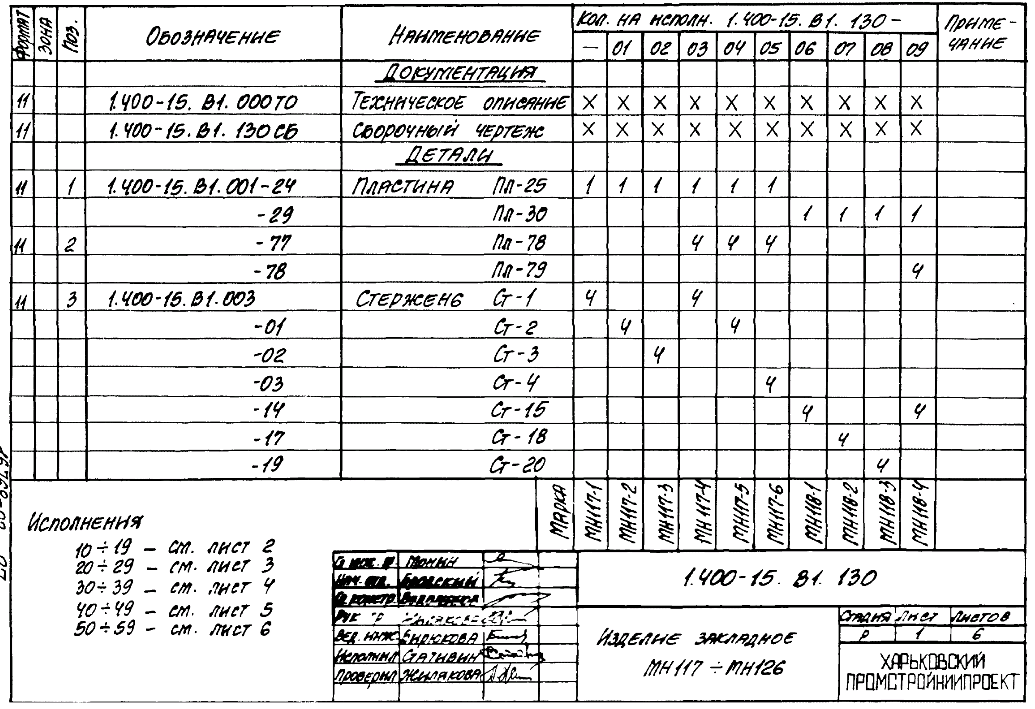 Формат Зона Поз. Обозначение Наименование Кол. на исполн. 1.400-15. В1. 130 - Примечание
— 01 02 03 04 05 06 07 08 09
Документация
11 1.400-15. В1. 000 ТО Техническое описание X X X X X X X X X X
11 1.400-15. В1. 130 СБ Сборочный чертеж X X X X X X X X X X
Детали
11 1 1.400-15. В1. 001-24 Пластина Пл-25 1 1 1 1 1 1
-29 Пл-30 1 1 1 1
11 2 -77 Пл-78 4 4 4
-78 Пл-79 4
11 3 1.400-15. В1. 003 Стержень Ст-1 4 4
-01 Ст-2 4 4
-02 Ст-3 4
-03 Ст-4 4
-14 Ст-15 4 4
-17 Ст-18 4
-19 Ст-20 4
Марка МН117-1 МН117-2 МН117-3 МН117-4 МН117-5 МН117-6 МН118-1 МН118-2 МН118-3 МН118-4
Исполнения
10÷19 – см. лист 2
20÷29 – см. лист 3
30÷39 – см. лист 4
40÷49 – см. лист 5
50÷59 – см. лист 6
1.400-15. В1. 130
Вед. инж. Бирюкова
Исполнил
Проверил Жилакова
Изделие закладное
МН117 ÷ МН126
Стадия Лист Листов
Р 1 6
ХАРЬКОВСКИЙ
ПРОМСТРОЙНИИПРОЕКТ